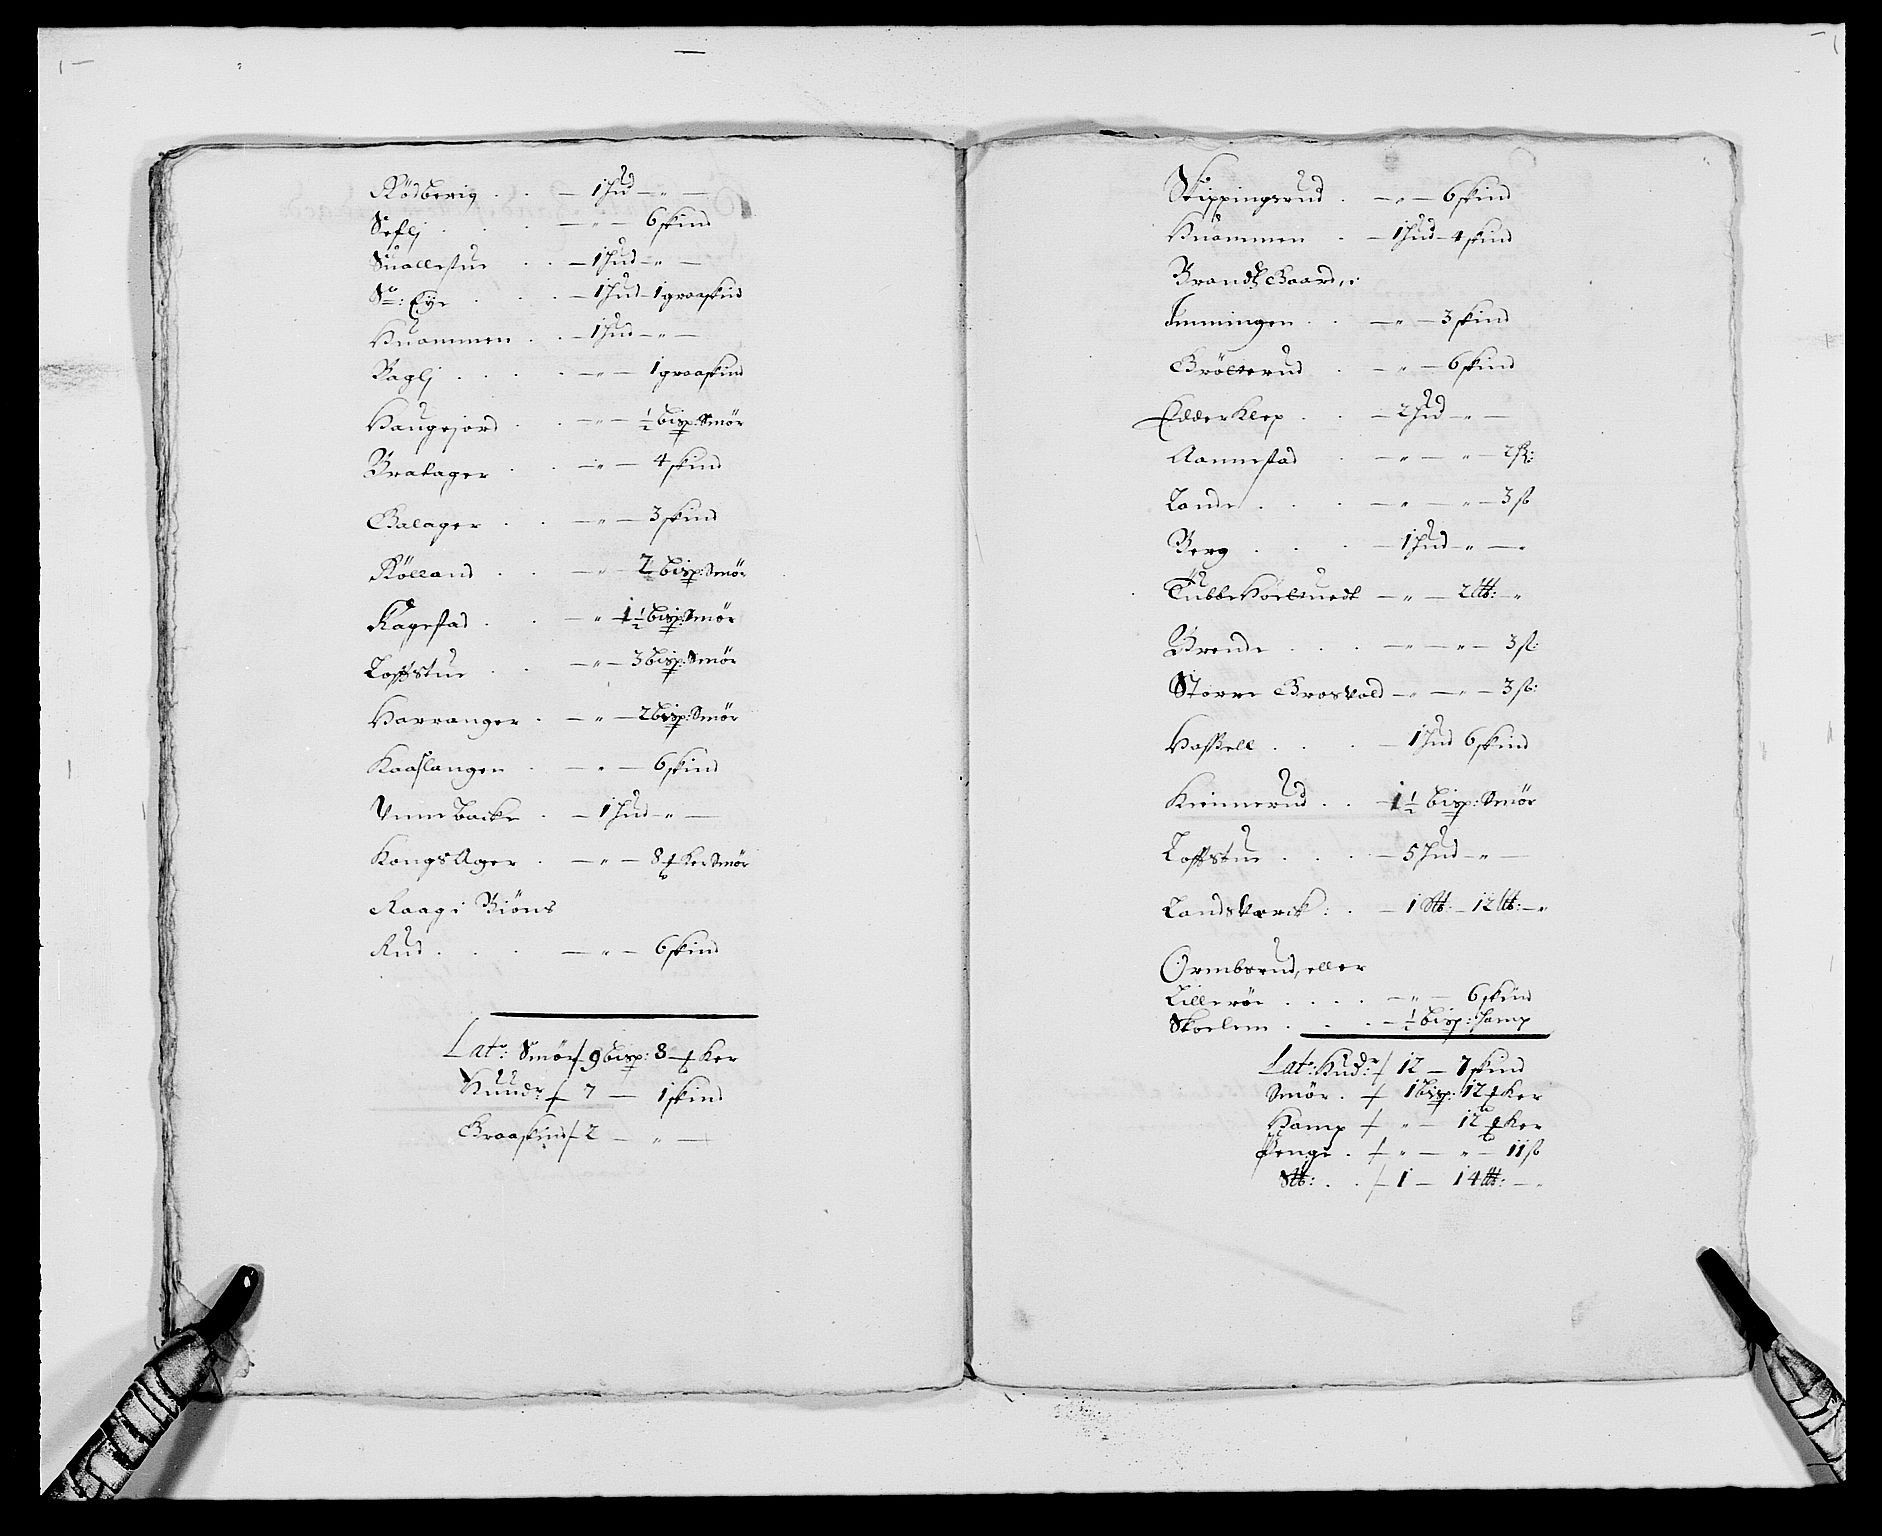 Rödberig . . — 1 hud — „ —
Seflj . . . — „ — 6 skind
Suallestue . . — 1 hud — „ —
Nº: Eye . . . — 1 hud — 1 graaskind
Huammen . . — 1 hud — „ —
Baglj . . . . — „ — 1 graaskind
Haugejord . . — „ — ½ bisp: Smör
Bratager . . — „ — 4 skind
Galager . . — „ — 3 skind
Rølland . . — „ — 2 bisp: Smør
Kagestad . . — „ 1½ bisp: Smør
Loffstue . . — „ — 3 bisp: Smør
Harranger . — „ — 2 bisp: Smør
Kaaslangen . — „ — 6 skind
Vnnebacke . — 1 hud — „ —
KongsAger . — „ — 8 ker Smør
Raage Biöns
Rud . . . . — „ — 6 skind
Lat: Smör / 9 bisp: 8 ker
Huud: / 7 — 1 skind
Graaskind / 2 — „ —
Skippingsrud . — „ — 6 skind
Huammen . — 1 hud — 4 skind
Brandtz Gaard,:
Immingen . . — „ — 3 skind
Gröterud . — „ — 6 skind
Edderklep . . — 2 hud — „ —
Aannestad . — „ — „ — 2 ß:
Lande . . . — „ — „ — 3 ß
Berg . . . — 1 hud — „ — „
TubbeHöltuedt — „ — 2 lb: — „
Brende . . . — „ — „ — 3 ß:
Storre Groswold — „ — „ — 3 ß:
Hassell . . . — 1 hud 6 skind
Kinnerud . . — 1½ bisp: Smör
Loffstue . . . — 5 hud — „ —
Landsværck : . — 1 Slb: — 12 lb: — „
Ormbsrud, eller
Lilleröe . . . . — „ — 6 skind
Skoelem . . . . — ½ bisp: hamp
Lat: Hud: / 12 — 7 skind
Smör . / 1 bisp: 12 ker
Hamp / „ — 12 ker
Penge . / „ — „ — 11 ß
Slb: . . / 1 — 14 lb: — „